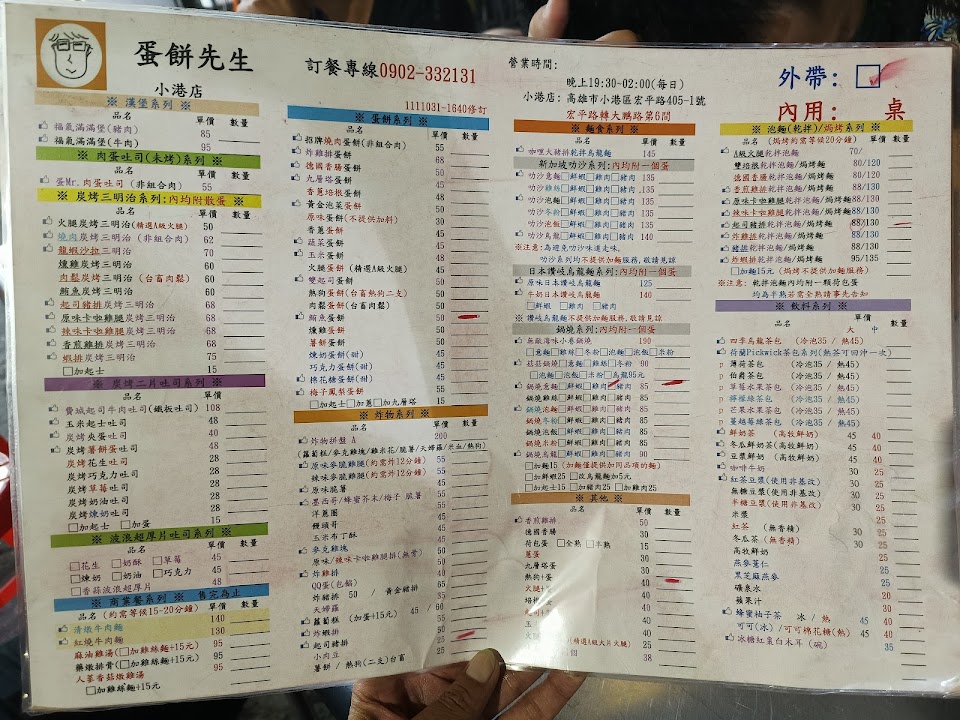 蛋餅先生
小港店
訂餐專線0902-332131
1111031-1640修訂
營業時間:
晚上19:30~02:00(每日)
小港店: 高雄市小港區宏平路405-1號
宏平路轉大鵬路第6間
外帶: □
內用: 桌
※ 漢堡系列 ※
品名 單價 數量
福氣滿滿堡(豬肉) 85
福氣滿滿堡(牛肉) 95
※ 肉蛋吐司(未烤)系列 ※
品名 單價 數量
蛋Mr.肉蛋吐司 (非組合肉) 55
※ 炭烤三明治系列:內均附散蛋 ※
品名 單價 數量
火腿炭烤三明治(精選A級火腿) 50
燒肉炭烤三明治 (非組合肉) 62
龍蝦沙拉三明治 70
燻雞炭烤三明治 60
肉鬆炭烤三明治 (台畜肉鬆) 60
鮪魚炭烤三明治 60
起司豬排炭烤三明治 68
原味卡啦雞腿炭烤三明治 68
辣味卡啦雞腿炭烤三明治 68
香煎雞排炭烤三明治 68
蝦排炭烤三明治 75
□加起士 15
※ 炭烤二片吐司系列 ※
品名 單價 數量
費城起司牛肉吐司(鐵板吐司) 108
玉米起士吐司 48
炭烤火蛋吐司 40
炭烤薯餅蛋吐司 48
炭烤花生吐司 28
炭烤巧克力吐司 28
炭烤草莓吐司 28
炭烤奶油吐司 28
炭烤煉奶吐司 28
□加起士 □加蛋 15
※ 波浪超厚片吐司系列 ※
品名 單價 數量
□花生 □奶酥 □草莓 45
□煉奶 □奶油 □巧克力 45
□香蒜波浪超厚片 48
※ 商業餐系列 售完為止
品名 (約需等候15-20分鐘) 單價 數量
清燉牛肉麵 140
紅燒牛肉麵 130
麻油雞湯(□加雞絲麵+15元) 95
藥燉排骨(□加雞絲麵+15元) 95
人蔘香菇燉雞湯 95
□加雞絲麵+15元
※ 蛋餅系列 ※
品名 單價 數量
招牌燒肉蛋餅(非組合肉) 55
炸雞排蛋餅 68
德國香腸蛋餅 50
九層塔蛋餅 45
香蔥培根蛋餅 50
黃金泡菜蛋餅 50
原味蛋餅(不提供加料) 30
香蔥蛋餅 35
蔬菜蛋餅 40
玉米蛋餅 40
火腿蛋餅 (精選A級火腿) 40
雙起司蛋餅 50
熱狗蛋餅(台畜熱狗二支) 40
肉鬆蛋餅(台畜肉鬆) 50
鮪魚蛋餅 50
燻雞蛋餅 50
薯餅蛋餅 50
煉奶蛋餅(甜) 40
巧克力蛋餅(甜) 40
棉花糖蛋餅(甜) 45
梅子鳳梨蛋餅 55
□加起士 □加蔥 □加九層塔 15
※ 炸物系列 ※
品名 單價 數量
炸物拼盤 A 200
(蘿蔔糕/麥克雞塊/雞米花/脆薯/天婦羅/米血/熱狗)
原味麥脆雞腿(約需炸12分鐘) 55
辣味麥脆雞腿(約需炸12分鐘) 55
原味脆薯 50
墨西哥/蜂蜜芥末/梅子 脆薯 55
洋蔥圈 40
饅頭哥
玉米布丁酥
麥克雞塊
原味/辣味卡啦雞腿排(無骨)
炸雞排
QQ蛋(包餡)
炸豬排 50 / 黃金豬排
天婦羅
蘿蔔糕 (加蛋+15元) 45 / 60
炸蝦排
起司豬排
小肉豆
薯餅 / 熱狗(二支)台畜
※ 麵食系列 ※
品名 單價 數量
咖哩大豬排乾拌烏龍麵 145
新加坡叻沙系列:內均附一個蛋
叻沙意麵□鮮蝦□雞肉□豬肉 135
叻沙雞絲□鮮蝦□雞肉□豬肉 135
叻沙泡麵□鮮蝦□雞肉□豬肉 135
叻沙冬粉□鮮蝦□雞肉□豬肉 135
叻沙泡飯□鮮蝦□雞肉□豬肉 135
叻沙烏龍□鮮蝦□雞肉□豬肉 140
※注意:為避免叻沙味道走味,
叻沙系列均不提供加麵服務,敬請見諒
日本讚岐烏龍麵系列:內均附一個蛋
原味日本讚岐烏龍麵 125
牛奶日本讚岐烏龍麵 140
□鮮蝦 □雞肉 □豬肉
※ 讚岐烏龍麵不提供加麵服務,敬請見諒
鍋燒系列:內均附一個蛋
無敵海味小卷鍋燒 190
□意麵□雞絲□冬粉□泡麵□泡飯□米粉
菇菇鍋燒□意麵□雞絲□冬粉 90
□泡麵□泡飯□米粉□烏龍95元
鍋燒意麵□鮮蝦□雞肉□豬肉 85
鍋燒雞絲□鮮蝦□雞肉□豬肉 85
鍋燒泡麵□鮮蝦□雞肉□豬肉 85
鍋燒冬粉□鮮蝦□雞肉□豬肉 85
鍋燒泡飯□鮮蝦□雞肉□豬肉 85
鍋燒米粉□鮮蝦□雞肉□豬肉 85
鍋燒烏龍□鮮蝦□雞肉□豬肉 90
□加麵15 (加麵僅提供加同品項的麵)
□加蛋15 □改烏龍麵加5元
□加起士15 □加豬肉25 □加雞肉25
※ 其他 ※
品名 單價 數量
香煎雞排 50
德國香腸
荷包蛋 □全熟 □半熟 15
蔥蛋
九層塔蛋
熱狗+蛋
火腿+
培根
玉米
火
(精選A級大片火腿)
38
※ 泡麵(乾拌)/焗烤系列 ※
品名 (焗烤約需等候20分鐘) 單價 數量
A級火腿乾拌泡麵 70/
雙培根乾拌泡麵/焗烤麵 80/120
德國香腸乾拌泡麵/焗烤麵 80/120
香煎雞排乾拌泡麵/焗烤麵 88/130
原味卡啦雞腿乾拌泡麵/焗烤麵88/130
辣味卡啦雞腿乾拌泡麵/焗烤麵88/130
起司豬排乾拌泡麵/焗烤麵 88/130
炸雞排乾拌泡麵/焗烤麵 88/130
豬排乾拌泡麵/焗烤麵 88/130
蝦排乾拌泡麵/焗烤麵 95/135
□加麵15元 (焗烤不提供加麵服務)
※注意: 乾拌泡麵內均附一顆荷包蛋
均為半熟若需全熟請事先告知
※ 飲料系列 ※
品名 單價 大 中 數量
四季烏龍茶包 (冷泡35 / 熱45)
荷蘭Pickwick茶包系列(無茶可回沖一次)
p 薄荷茶包 (冷泡35 / 熱45)
p 伯爵茶包 (冷泡35 / 熱45)
p 草莓水果茶包 (冷泡35 / 熱45)
p 檸檬綠茶包 (冷泡35 / 熱45)
p 芒果水果茶包 (冷泡35 / 熱45)
p 蔓越莓綠茶包 (冷泡35 / 熱45)
鮮奶茶 (高牧鮮奶) 45 40
冬瓜鮮奶茶(高牧鮮奶) 45 40
豆漿鮮奶 (高牧鮮奶) 45 40
咖啡牛奶 30 25
紅茶豆漿(使用非基改) 30 25
無糖豆漿(使用非基改) 30 25
半糖豆漿(使用非基改) 30 25
米漿 30 25
紅茶 (無香精) 30 25
冬瓜茶 (無香精) 30 25
高牧鮮奶
燕麥薏仁 25
黑芝麻燕麥 25
礦泉水 20
蘋果汁 30
蜂蜜柚子茶 冰 / 熱 45 40
可可(冰)/可可棉花糖(熱) 45 40
冰糖紅棗白木耳 (碗) 35